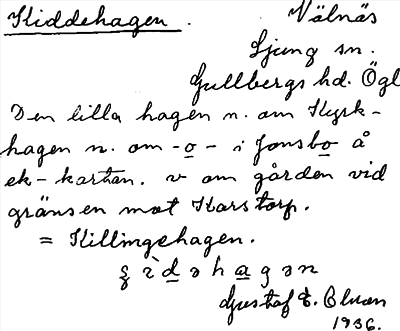 Kiddehagen. Välnäs
Ljung sn.
Gullbergs hd. Ögl
Den lilla hagen n. om Kyrk-
hagen n. om -o- i Jonsbo å
ek-kartan. v om gården vid
gränsen mot Karstorp.
= Killingehagen.
ʒ ì d ə h a g ə n
Gustaf E.
1936.